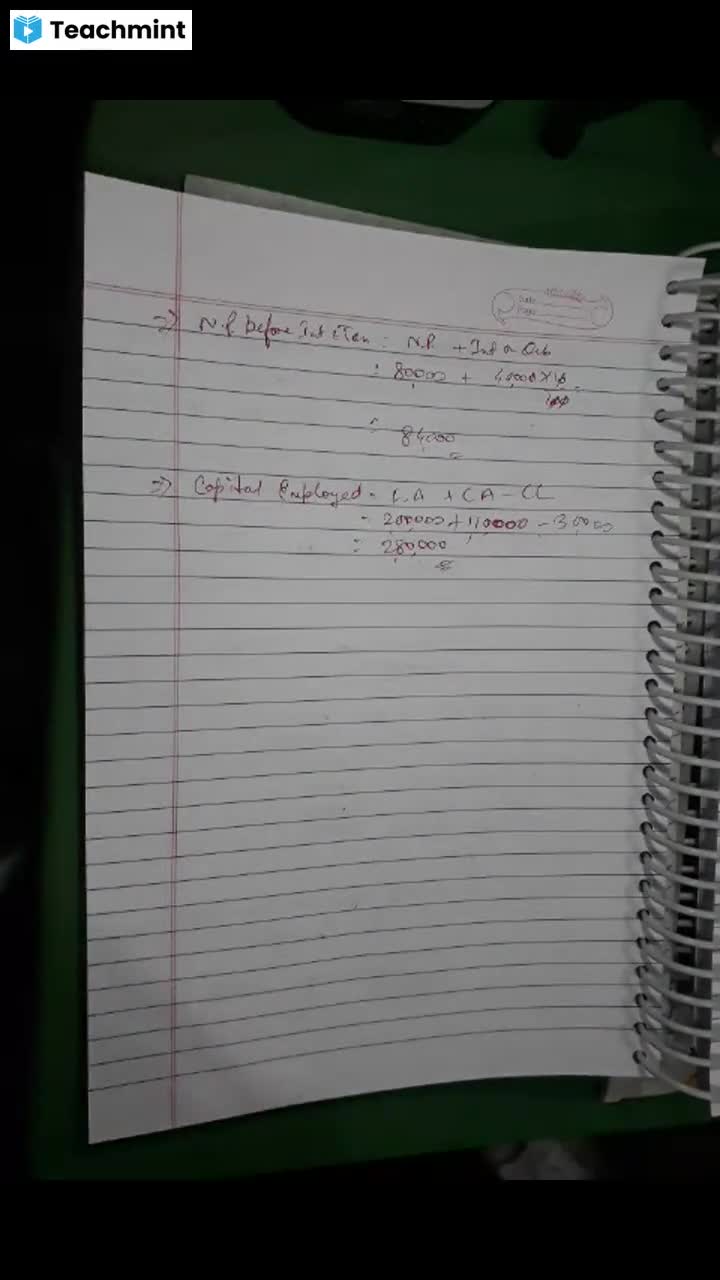 Teachmint
Date
Page
⇒ N.P before Int & Tax : N.P + Int on Deb
: 80,000 + 40,000 X 10
100
: 84,000
⇒ Capital Employed - F.A + CA - CL
- 200,000 + 1,10,000 - 30,000
: 280,000